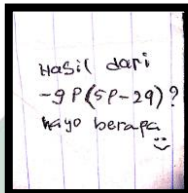 Hasil dari
-9P(5P-29)?
hayo berapa